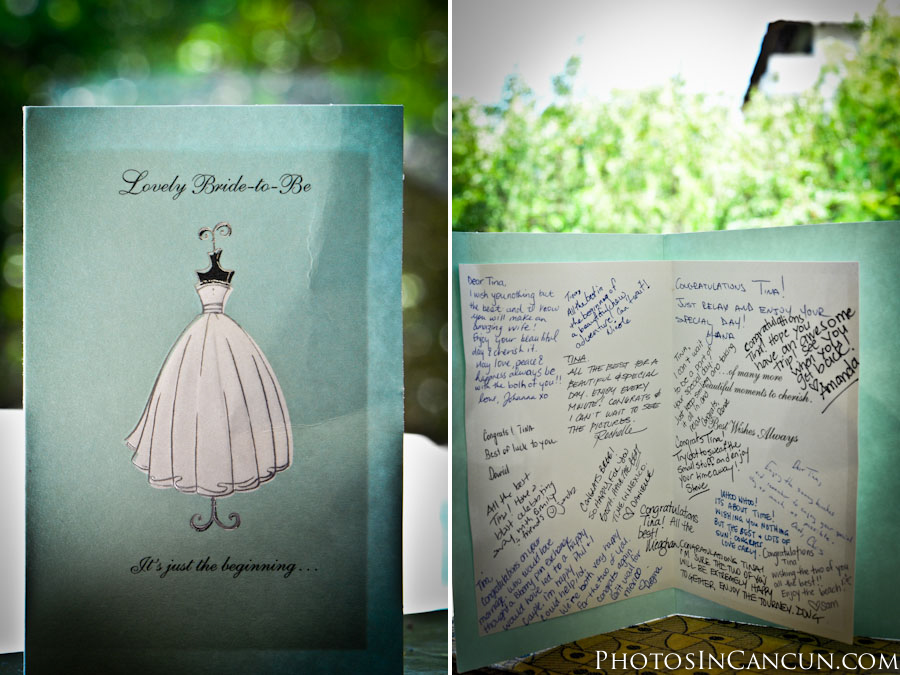 Lovely Bride-to-Be
It's just the beginning...
Dear Tina,
I wish you nothing but
the best and I know
you will make an
amazing wife!
Enjoy your beautiful
day & cherish it.
May love, peace &
happiness always be
with the both of you!!
Love, Johanna xo
Tina,
All the best in
the beginning of
a beautiful
adventure!
Nicole
TINA,
ALL THE BEST FOR A
BEAUTIFUL & SPECIAL
DAY. ENJOY EVERY
MINUTE! CONGRATS &
I CAN'T WAIT TO SEE
THE PICTURES.
Rochelle
Congrats! Tina
Best of luck to you
David
All the best
Tina! Have a
blast celebrating
away with family
friends
CONGRATS
SO HAPPY FOR YOU
DANIELLE
Tina,
Congratulations on your
would have
happy
for the two of you
Congrats again!
Mexico
CONGRATULATIONS TINA!
JUST RELAX AND ENJOY YOUR
SPECIAL DAY!
Congratulations
Tina! Hope you
have an awesome
trip! See you
when you
get back!
Amanda
Tina,
I can't wait
to be a part of
your special day
...of many more
beautiful moments to cherish.
Best Wishes Always
Congrats Tina!
Try not to sweat the
small stuff and enjoy
your time away!
Steve
Dear Tina,
WHOO WHOO!
IT'S ABOUT TIME!
WISHING YOU NOTHING
BUT THE BEST & LOTS OF
FUN! CONGRATS
LOVE CARLY.
Congratulations
Tina! All the
best!
Meaghan
CONGRATULATIONS TINA!
I'M SURE THE TWO OF YOU
WILL BE EXTREMELY HAPPY
TOGETHER. ENJOY THE JOURNEY. DOUG
Congratulations
Tina!
wishing the two of you
all the best!!
Enjoy the beach!
Sam
PHOTOSINCANCUN.COM